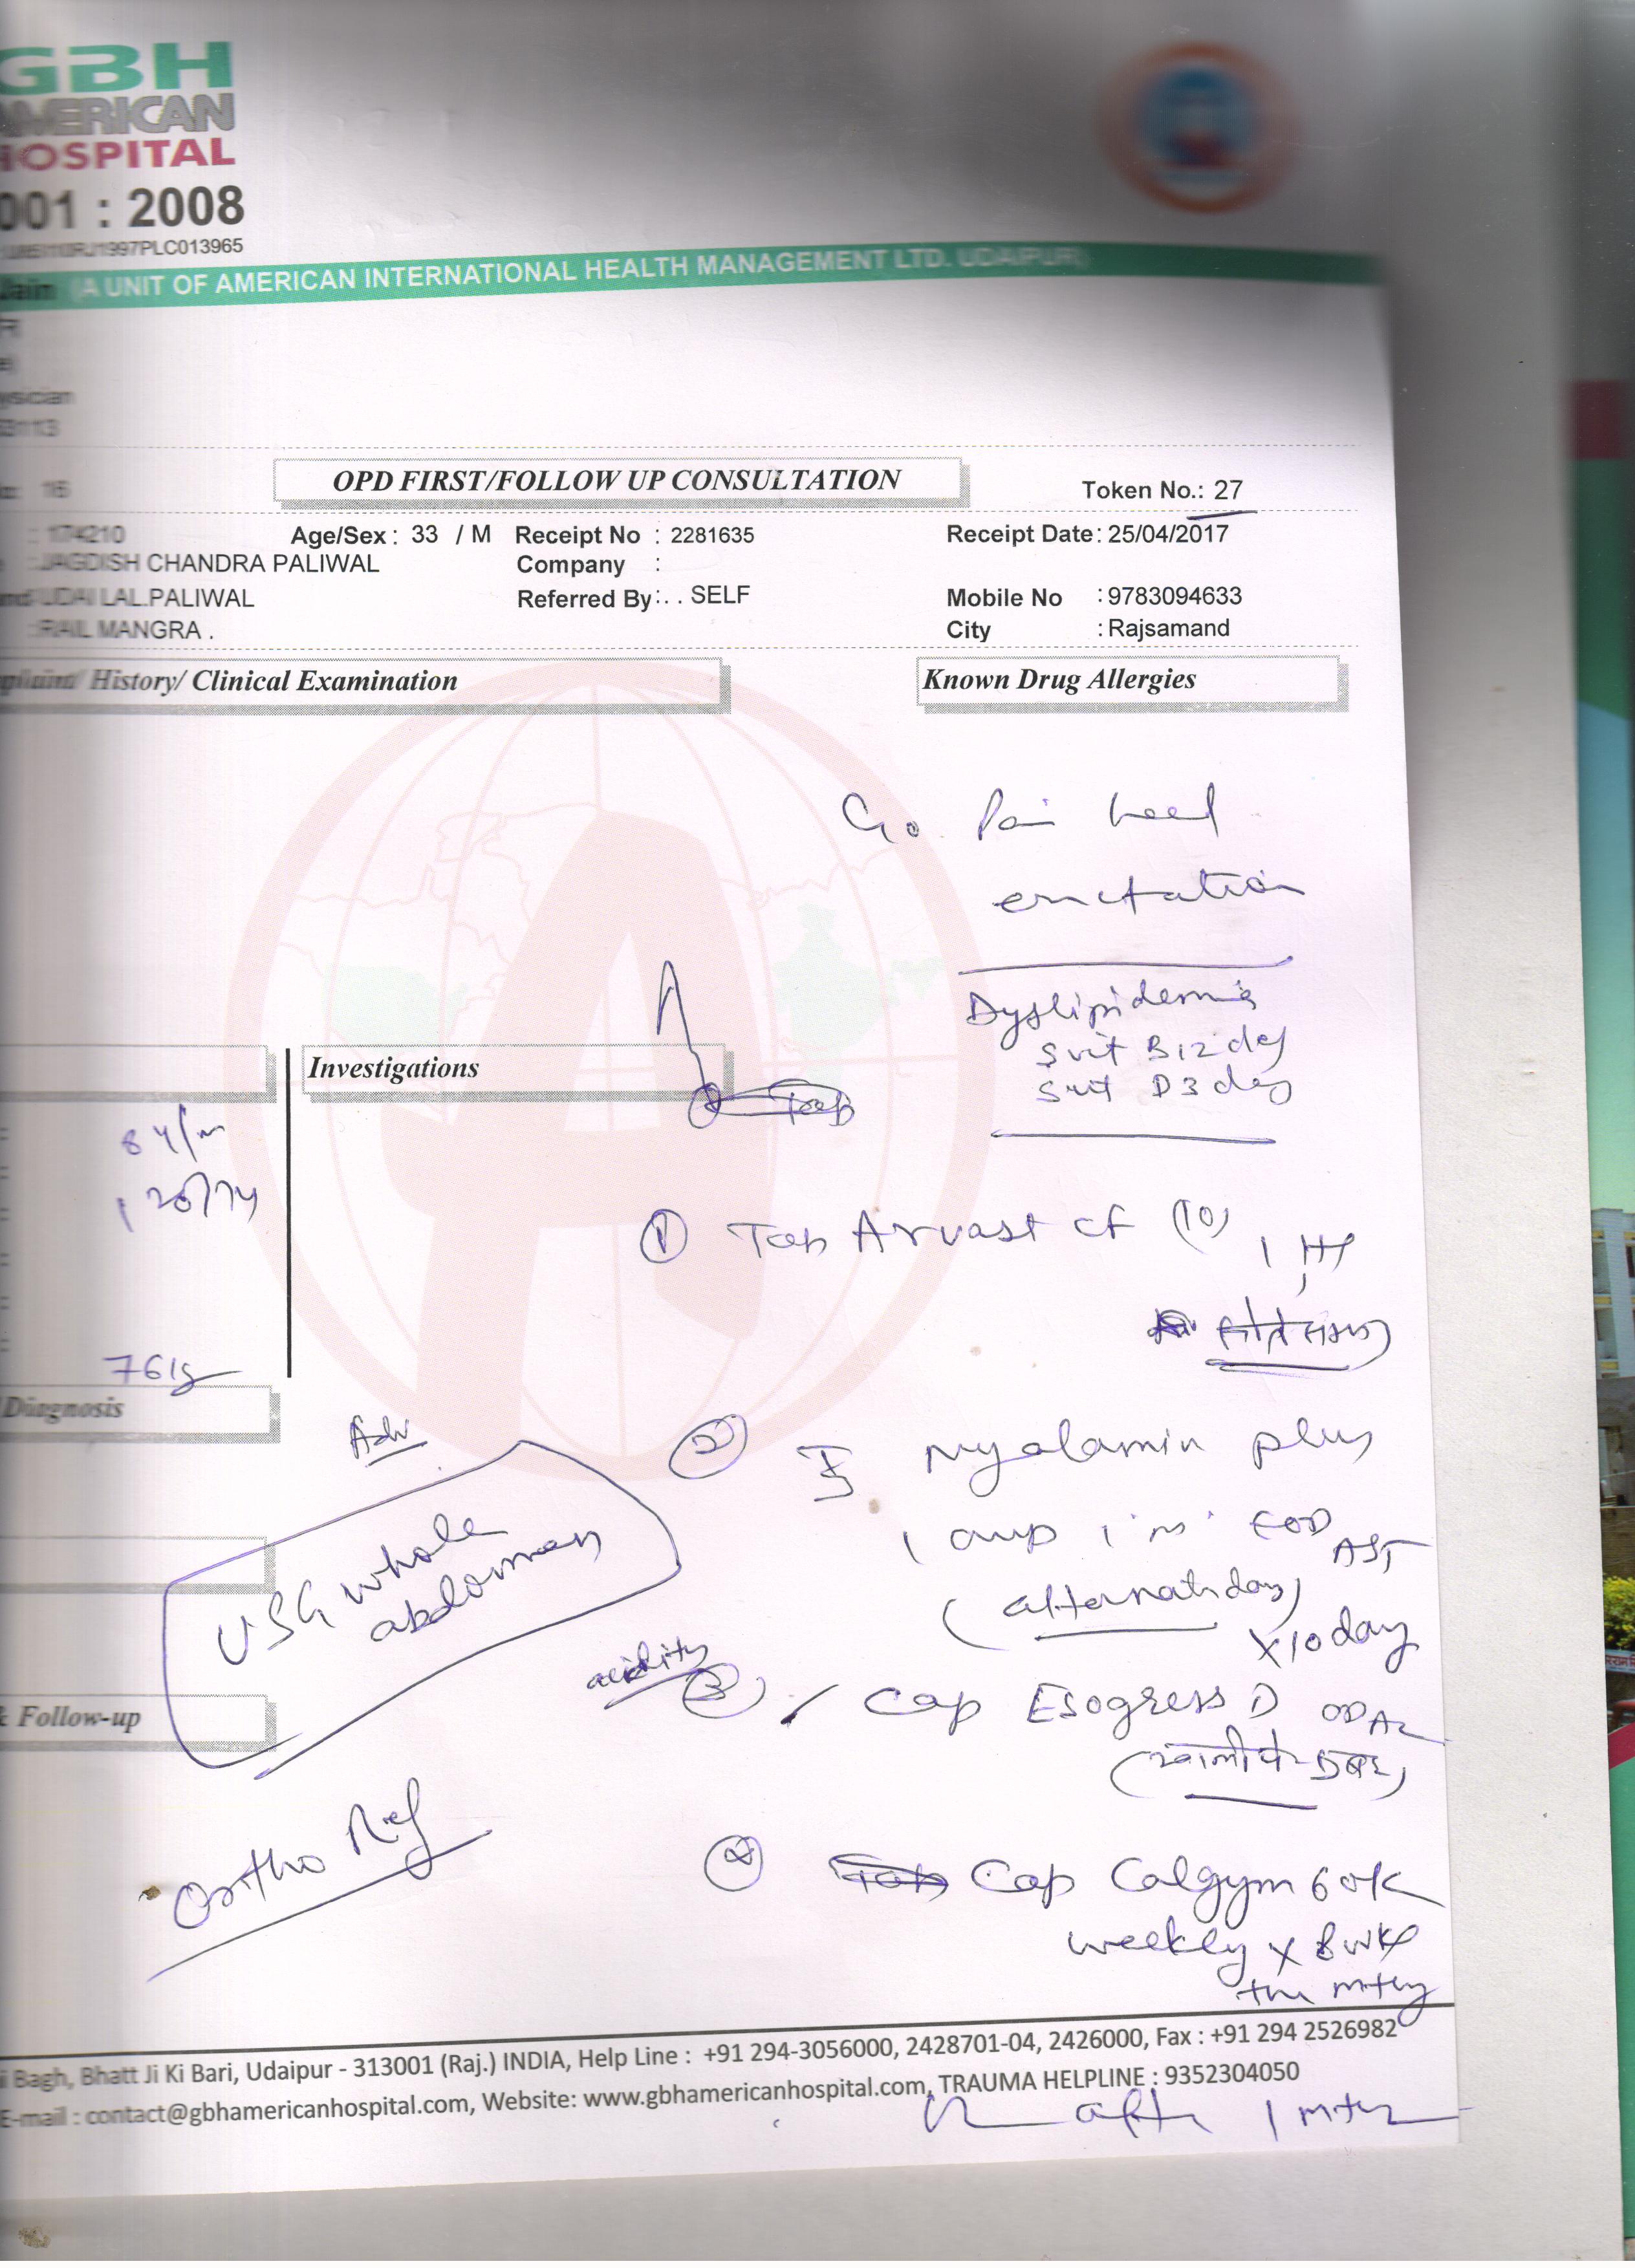 GBH
AMERICAN
HOSPITAL
001 : 2008
1997PLC013965
Jain (A UNIT OF AMERICAN INTERNATIONAL HEALTH MANAGEMENT LTD. UDAIPUR)
ysician
53113
16
OPD FIRST/FOLLOW UP CONSULTATION
Token No.: 27
: 174210 Age/Sex : 33 / M Receipt No : 2281635 Receipt Date: 25/04/2017
: JAGDISH CHANDRA PALIWAL Company :
UDAI LAL.PALIWAL Referred By : . . SELF Mobile No : 9783094633
: RAIL MANGRA . City : Rajsamand
plaint/ History/ Clinical Examination
Known Drug Allergies
C/o. Pain heel
eructation
Dyslipidemia
Svit B12 def
Svit D3 def
Investigations
Tab
84/m
120/74
① Tab Arvast CF (10)
1 HS
76kg
Diagnosis
Adv
USG whole
abdomen
② Inj Nyolamin plus
1 amp i'm' EOD
AST
(alternate day)
x10 day
acidity
③ Cap Esogress D OD AC
④ Cap Calgym 60K
weekly x 8 wk
then mthly
& Follow-up
Ortho Ref
Bagh, Bhatt Ji Ki Bari, Udaipur - 313001 (Raj.) INDIA, Help Line : +91 294-3056000, 2428701-04, 2426000, Fax : +91 294 2526982
E-mail : contact@gbhamericanhospital.com, Website: www.gbhamericanhospital.com, TRAUMA HELPLINE : 9352304050
after 1 mth